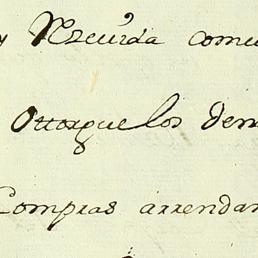 y Nzeuida comu
Ottorgue los dem
Compras arrendam